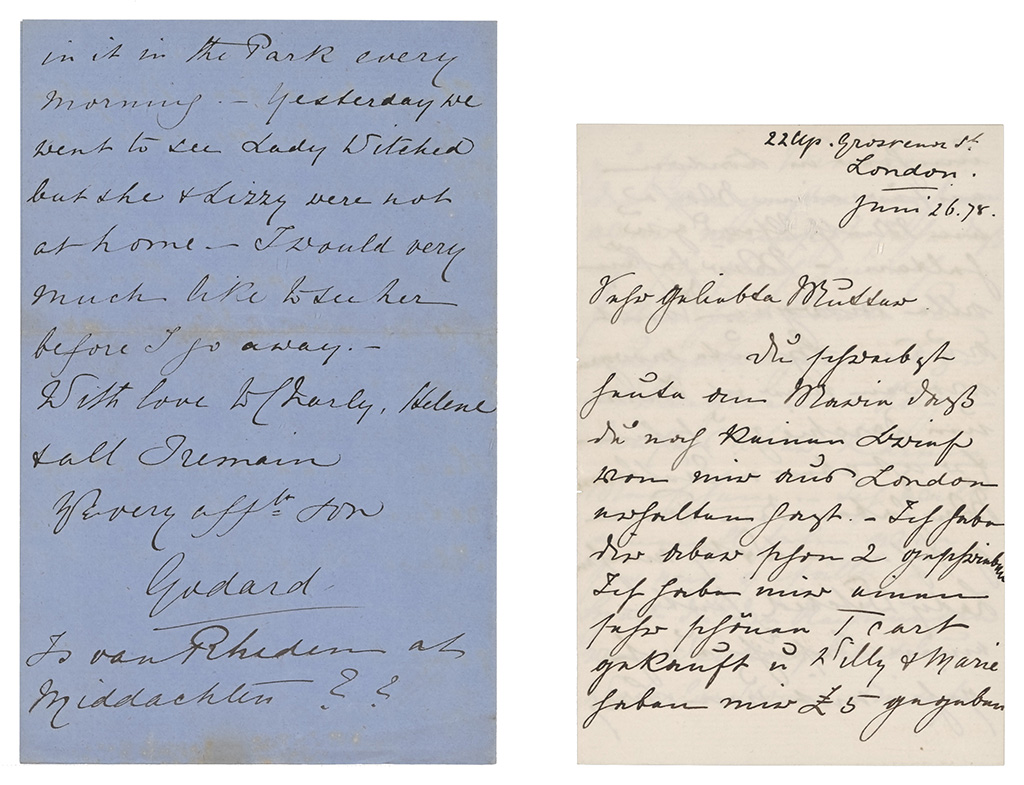 in it in the Park every
morning. – Yesterday we
went to see Lady Witched
but she & Lizzy were not
at home – I would very
much like to see her
before I go away. –
With love to Charly, Helene
& all I remain
Yr very affte son
Godard
Is van Rheden at
Middachten ? ?
22 Up. Grosvenor St.
London.
Juni 26. 78.
Sehr geliebte Mutter
Du schreibst
heute an Marie daß
du noch keinen Brief
von mir aus London
erhalten hast. – Ich habe
dir aber schon 2 geschrieben
Ich habe mir einen
sehr schönen T cart
gekauft u Willy & Marie
haben mir £ 5 gegeben